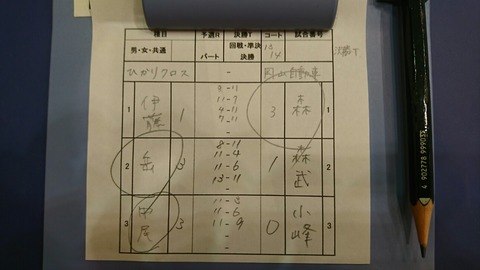 種目 予選R 決勝T コート 試合番号
男・女・共通 パート 回戦・準決 決勝 13 14 決勝T
ひかりクロス -
1 伊藤 1 9-11 3 森 1
11-7
4-11
7-11
-
2 岳 3 8-11 1 2
11-4
11-6
13-11
-
3 3 11-3 0 小峰 3
11-6
11-9
-
-
4 902778 999033